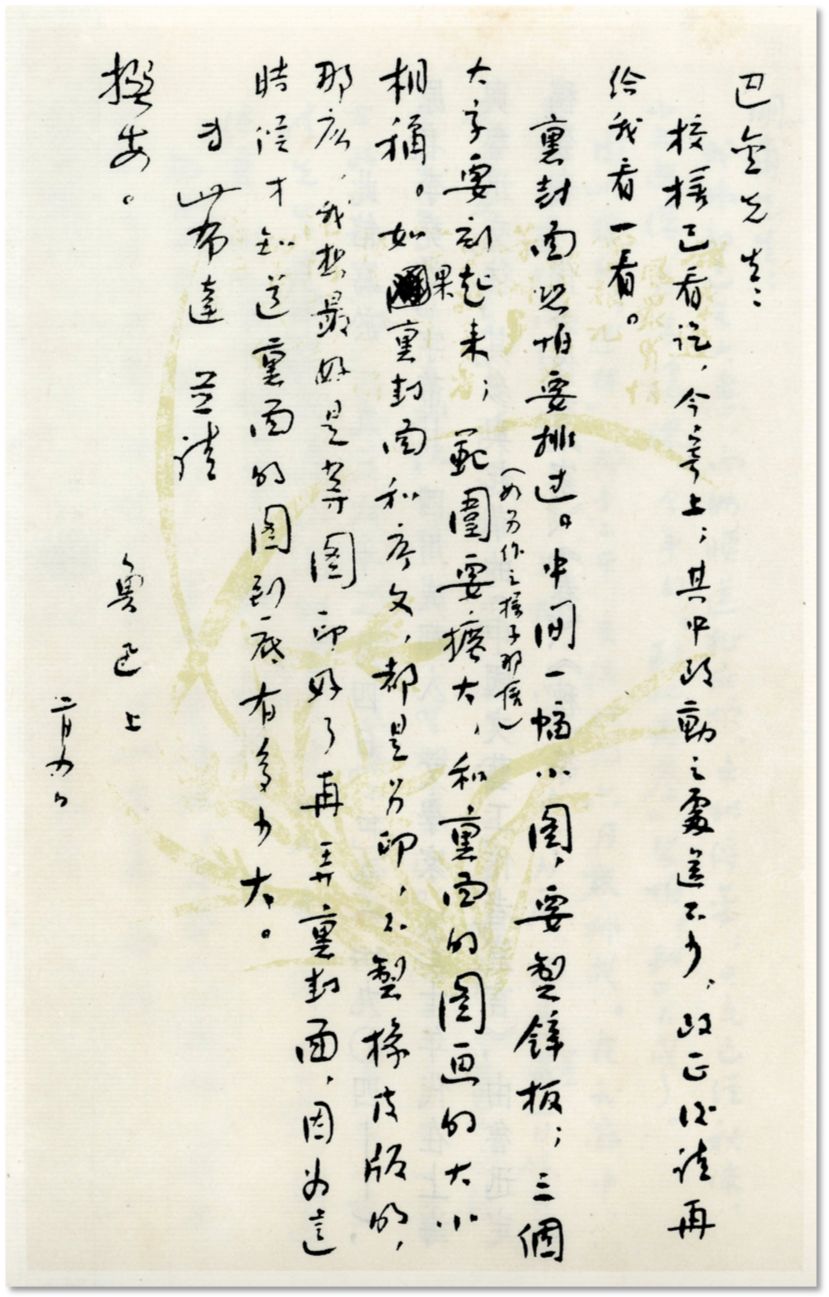 巴金先生：
校樣已看訖，今寄上；其中改動之處還不少，改正後請再
給我看一看。
裏封面恐怕要排過。中間一幅小圖，要製鋅板；三個
大字要刻起來；範圍要擴大，和裏面的圖画的大小
（如另作之樣子那樣）
相稱。如果裏封面和序文，都是另印，不製橡皮版的，
那麽，我想最好是等圖印好了再弄裏封面，因为這
時候才知道裏面的圖到底有多少大。
専此布達 並請
撰安。
魯迅上
二月九日